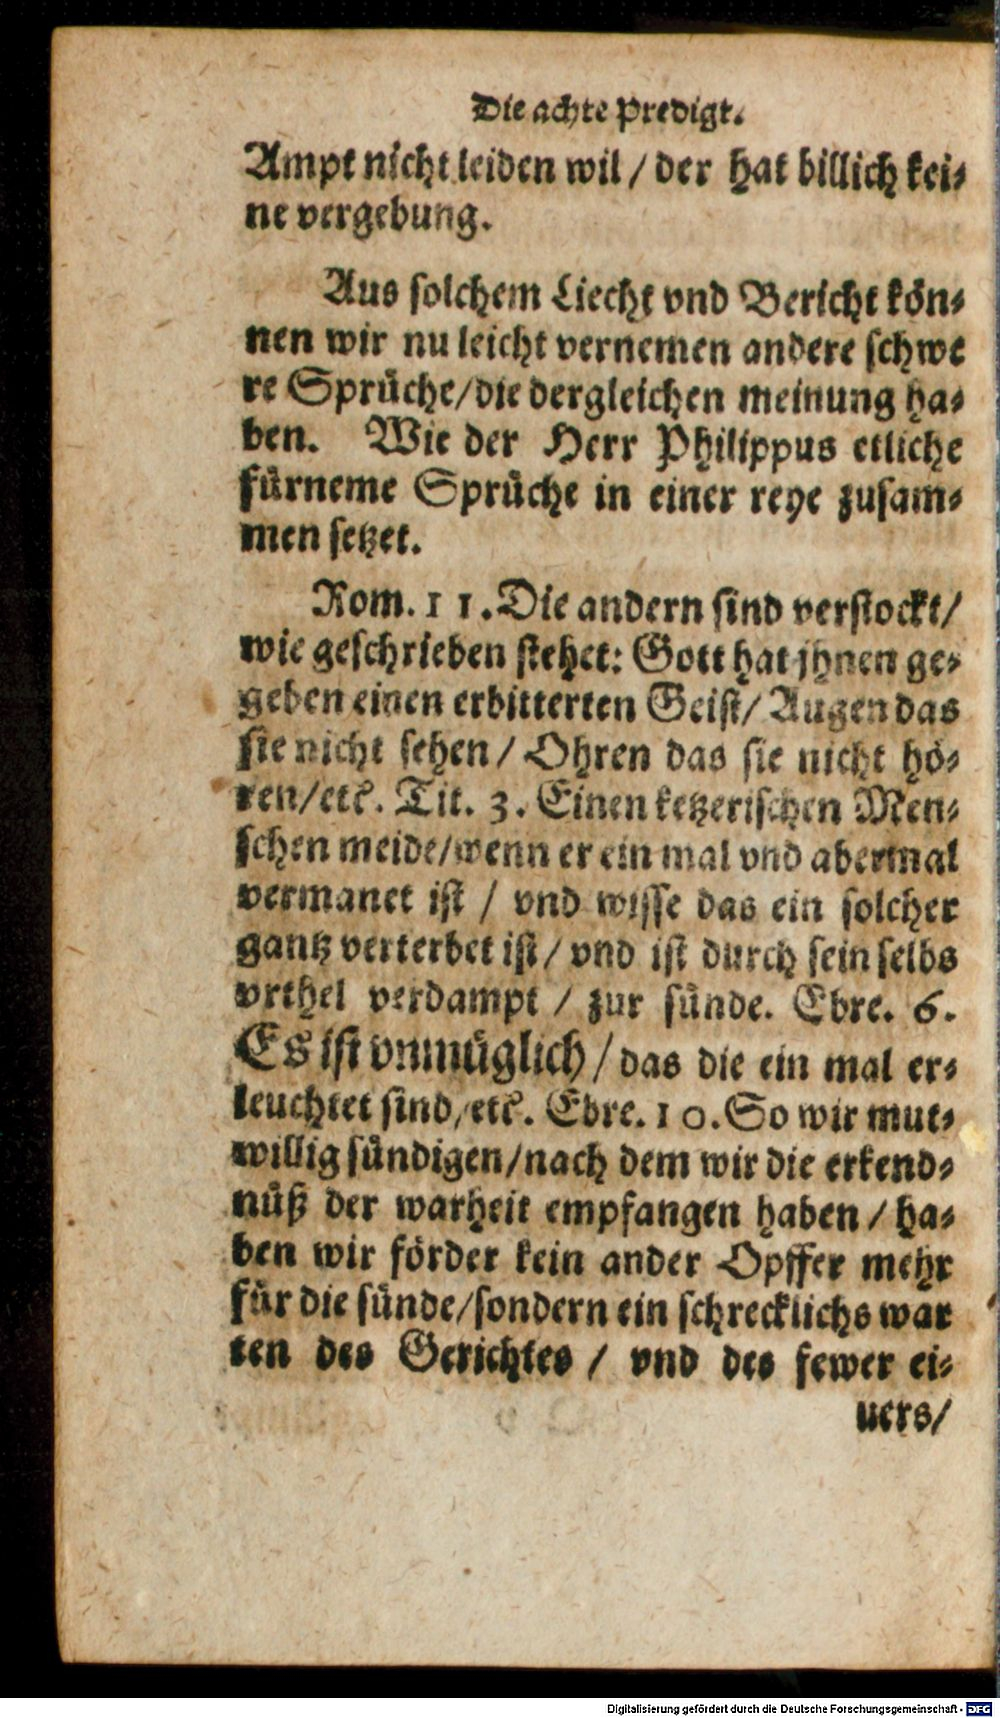 Die achte Predigt.
Ampt nicht leiden wil / der hat billich kei⸗
ne vergebung.
Aus solchem Liecht vnd Bericht kön⸗
nen wir nu leicht vernemen andere schwe
re Sprüche/die dergleichen meinung ha⸗
ben. Wie der Herr Philippus etliche
fürneme Sprüche in einer reye zusam⸗
men setzet.
Rom. 11. Die andern sind verstockt/
wie geschrieben stehet: Gott hat jhnen ge⸗
geben einen erbitterten Geist/ Augen das
sie nicht sehen / Ohren das sie nicht hö⸗
ren/etc. Tit. 3. Einen ketzerischen Men⸗
schen meide/wenn er ein mal vnd abermal
vermanet ist / vnd wisse das ein solcher
gantz verterbet ist/ vnd ist durch sein selbs
vrthel verdampt / zur sünde. Ebre. 6.
Es ist vnmüglich / das die ein mal er⸗
leuchtet sind/etc. Ebre. 10. So wir mut⸗
willig sündigen/nach dem wir die erkend⸗
nüß der warheit empfangen haben / ha⸗
ben wir förder kein ander Opffer mehr
für die sünde/sondern ein schrecklichs war
ten des Gerichtes / vnd des fewer ei⸗
uers/
Digitalisierung gefördert durch die Deutsche Forschungsgemeinschaft - DFG